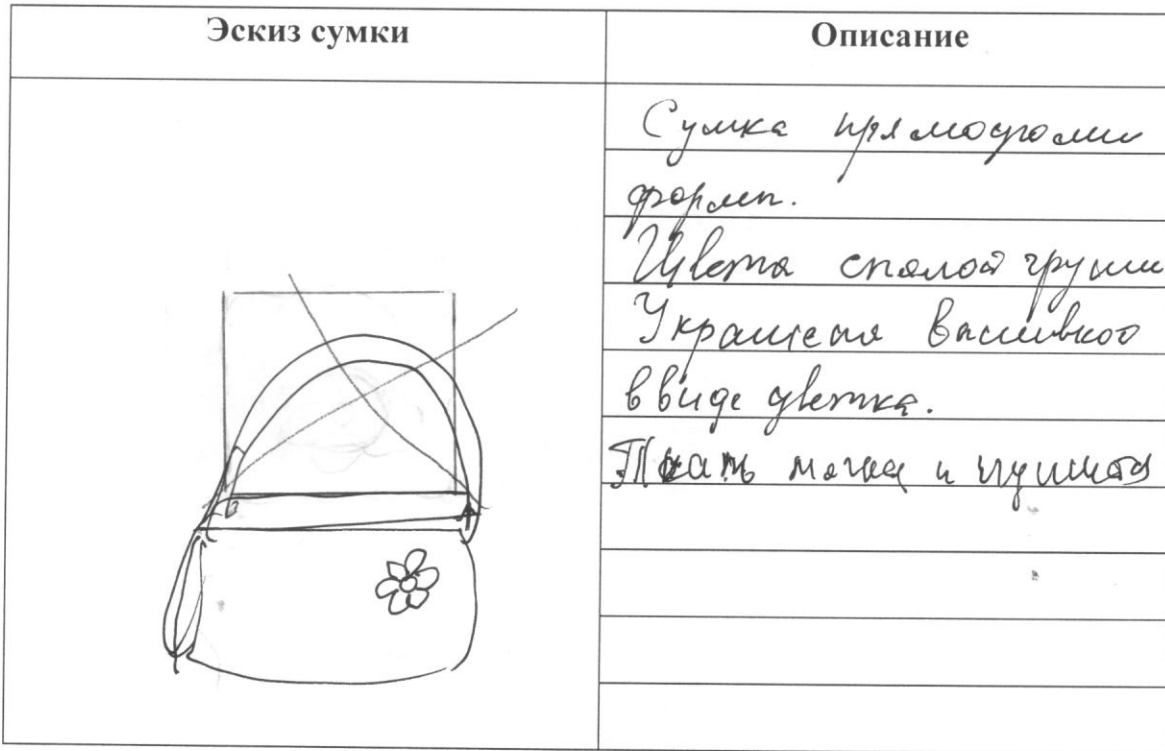 Эскиз сумки
Описание
Сумка прямоуголи
формы.
Цвета спалой груши
Украшена вышивкой
в виде цветка.
Ткань мягка и пушиста